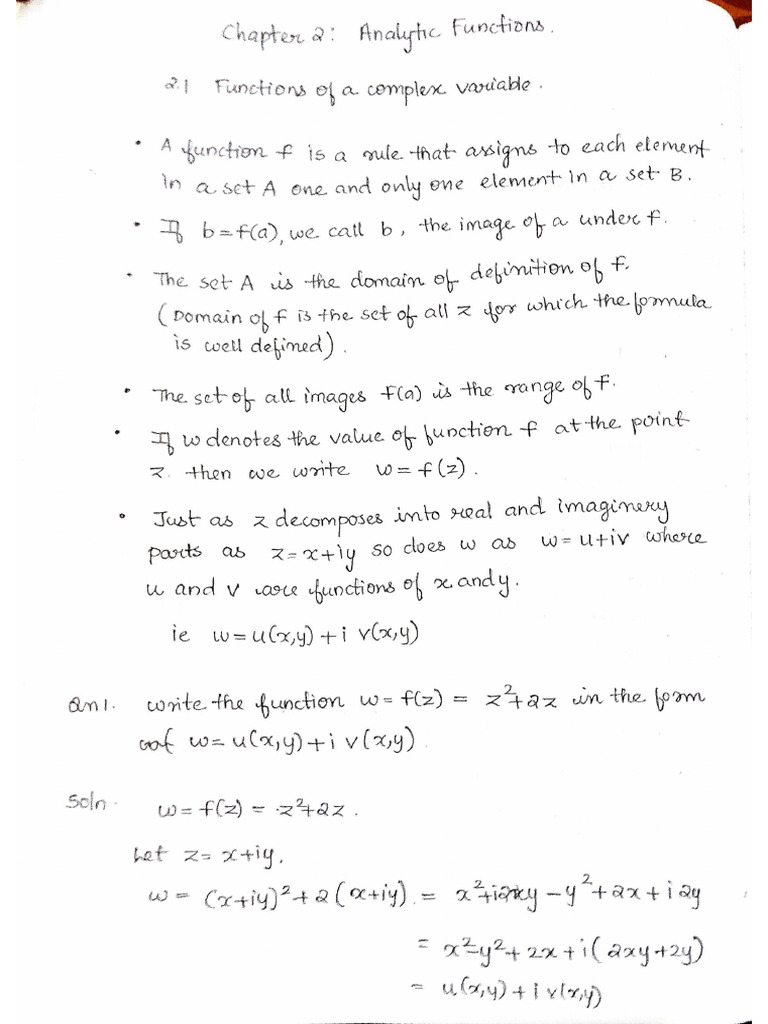 Chapter 2: Analytic Functions.
2.1 Functions of a complex variable.
• A function f is a rule that assigns to each element
in a set A one and only one element in a set B.
• If b=f(a), we call b, the image of a under f.
• The set A is the domain of definition of f.
(Domain of f is the set of all z for which the formula
is well defined).
• The set of all images f(a) is the range of f.
• If w denotes the value of function f at the point
z. then we write w = f(z).
• Just as z decomposes into real and imaginery
parts as z=x+iy so does w as w=u+iv where
u and v are functions of x and y.
ie w=u(x,y)+i v(x,y)
Qn1. write the function w=f(z) = z²+2z in the form
of w=u(x,y)+i v(x,y)
Soln. w=f(z) = z²+2z.
Let z= x+iy.
w = (x+iy)²+2(x+iy). = x²+i2xy-y²+2x+i2y
= x²-y²+2x+i(2xy+2y)
= u(x,y)+i v(x,y)